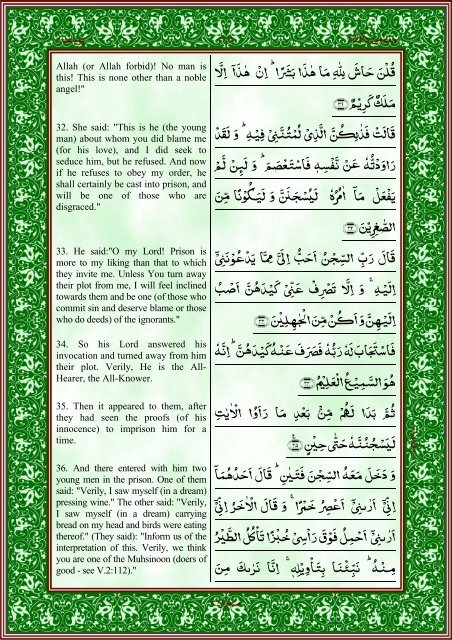 Allah (or Allah forbid)! No man is
this! This is none other than a noble
angel!"
32. She said: "This is he (the young
man) about whom you did blame me
(for his love), and I did seek to
seduce him, but he refused. And now
if he refuses to obey my order, he
shall certainly be cast into prison, and
will be one of those who are
disgraced."
33. He said:"O my Lord! Prison is
more to my liking than that to which
they invite me. Unless You turn away
their plot from me, I will feel inclined
towards them and be one (of those who
commit sin and deserve blame or those
who do deeds) of the ignorants."
34. So his Lord answered his
invocation and turned away from him
their plot. Verily, He is the All-
Hearer, the All-Knower.
35. Then it appeared to them, after
they had seen the proofs (of his
innocence) to imprison him for a
time.
36. And there entered with him two
young men in the prison. One of them
said: "Verily, I saw myself (in a dream)
pressing wine." The other said: "Verily,
I saw myself (in a dream) carrying
bread on my head and birds were eating
thereof." (They said): "Inform us of the
interpretation of this. Verily, we think
you are one of the Muhsinoon (doers of
good - see V.2:112)."
قُلْنَ حَاشَ لِلّٰهِ مَا هٰذَا بَشَرًا ؕ اِنْ هٰذَاۤ اِلَّا
مَلَكٌ كَرِيْمٌ ﴿۳۱﴾
قَالَتْ فَذٰلِكُنَّ الَّذِىْ لُمْتُنَّنِىْ فِيْهِ ؕ وَ لَقَدْ
رَاوَدْتُّهٗ عَنْ نَّفْسِهٖ فَاسْتَعْصَمَ ؕ وَ لَئِنْ لَّمْ
يَفْعَلْ مَاۤ اٰمُرُهٗ لَيُسْجَنَنَّ وَ لَيَكُوْنًا مِّنَ
الصّٰغِرِيْنَ ﴿۳۲﴾
قَالَ رَبِّ السِّجْنُ اَحَبُّ اِلَىَّ مِمَّا يَدْعُوْنَنِىْۤ
اِلَيْهِ ۚ وَ اِلَّا تَصْرِفْ عَنِّىْ كَيْدَهُنَّ اَصْبُ
اِلَيْهِنَّ وَ اَكُنْ مِّنَ الْجٰهِلِيْنَ ﴿۳۳﴾
فَاسْتَجَابَ لَهٗ رَبُّهٗ فَصَرَفَ عَنْهُ كَيْدَهُنَّ ؕ اِنَّهٗ
هُوَ السَّمِيْعُ الْعَلِيْمُ ﴿۳۴﴾
ثُمَّ بَدَا لَهُمْ مِّنْۢ بَعْدِ مَا رَاَوُا الْاٰيٰتِ
لَيَسْجُنُنَّهٗ حَتّٰى حِيْنٍ ﴿۳۵﴾
وَ دَخَلَ مَعَهُ السِّجْنَ فَتَيٰنِ ؕ قَالَ اَحَدُهُمَاۤ
اِنِّىْۤ اَرٰىنِىْۤ اَعْصِرُ خَمْرًا ۚ وَ قَالَ الْاٰخَرُ اِنِّىْۤ
اَرٰىنِىْۤ اَحْمِلُ فَوْقَ رَاْسِىْ خُبْزًا تَاْكُلُ الطَّيْرُ
مِنْهُ ؕ نَبِّئْنَا بِتَاْوِيْلِهٖ ۚ اِنَّا نَرٰىكَ مِنَ